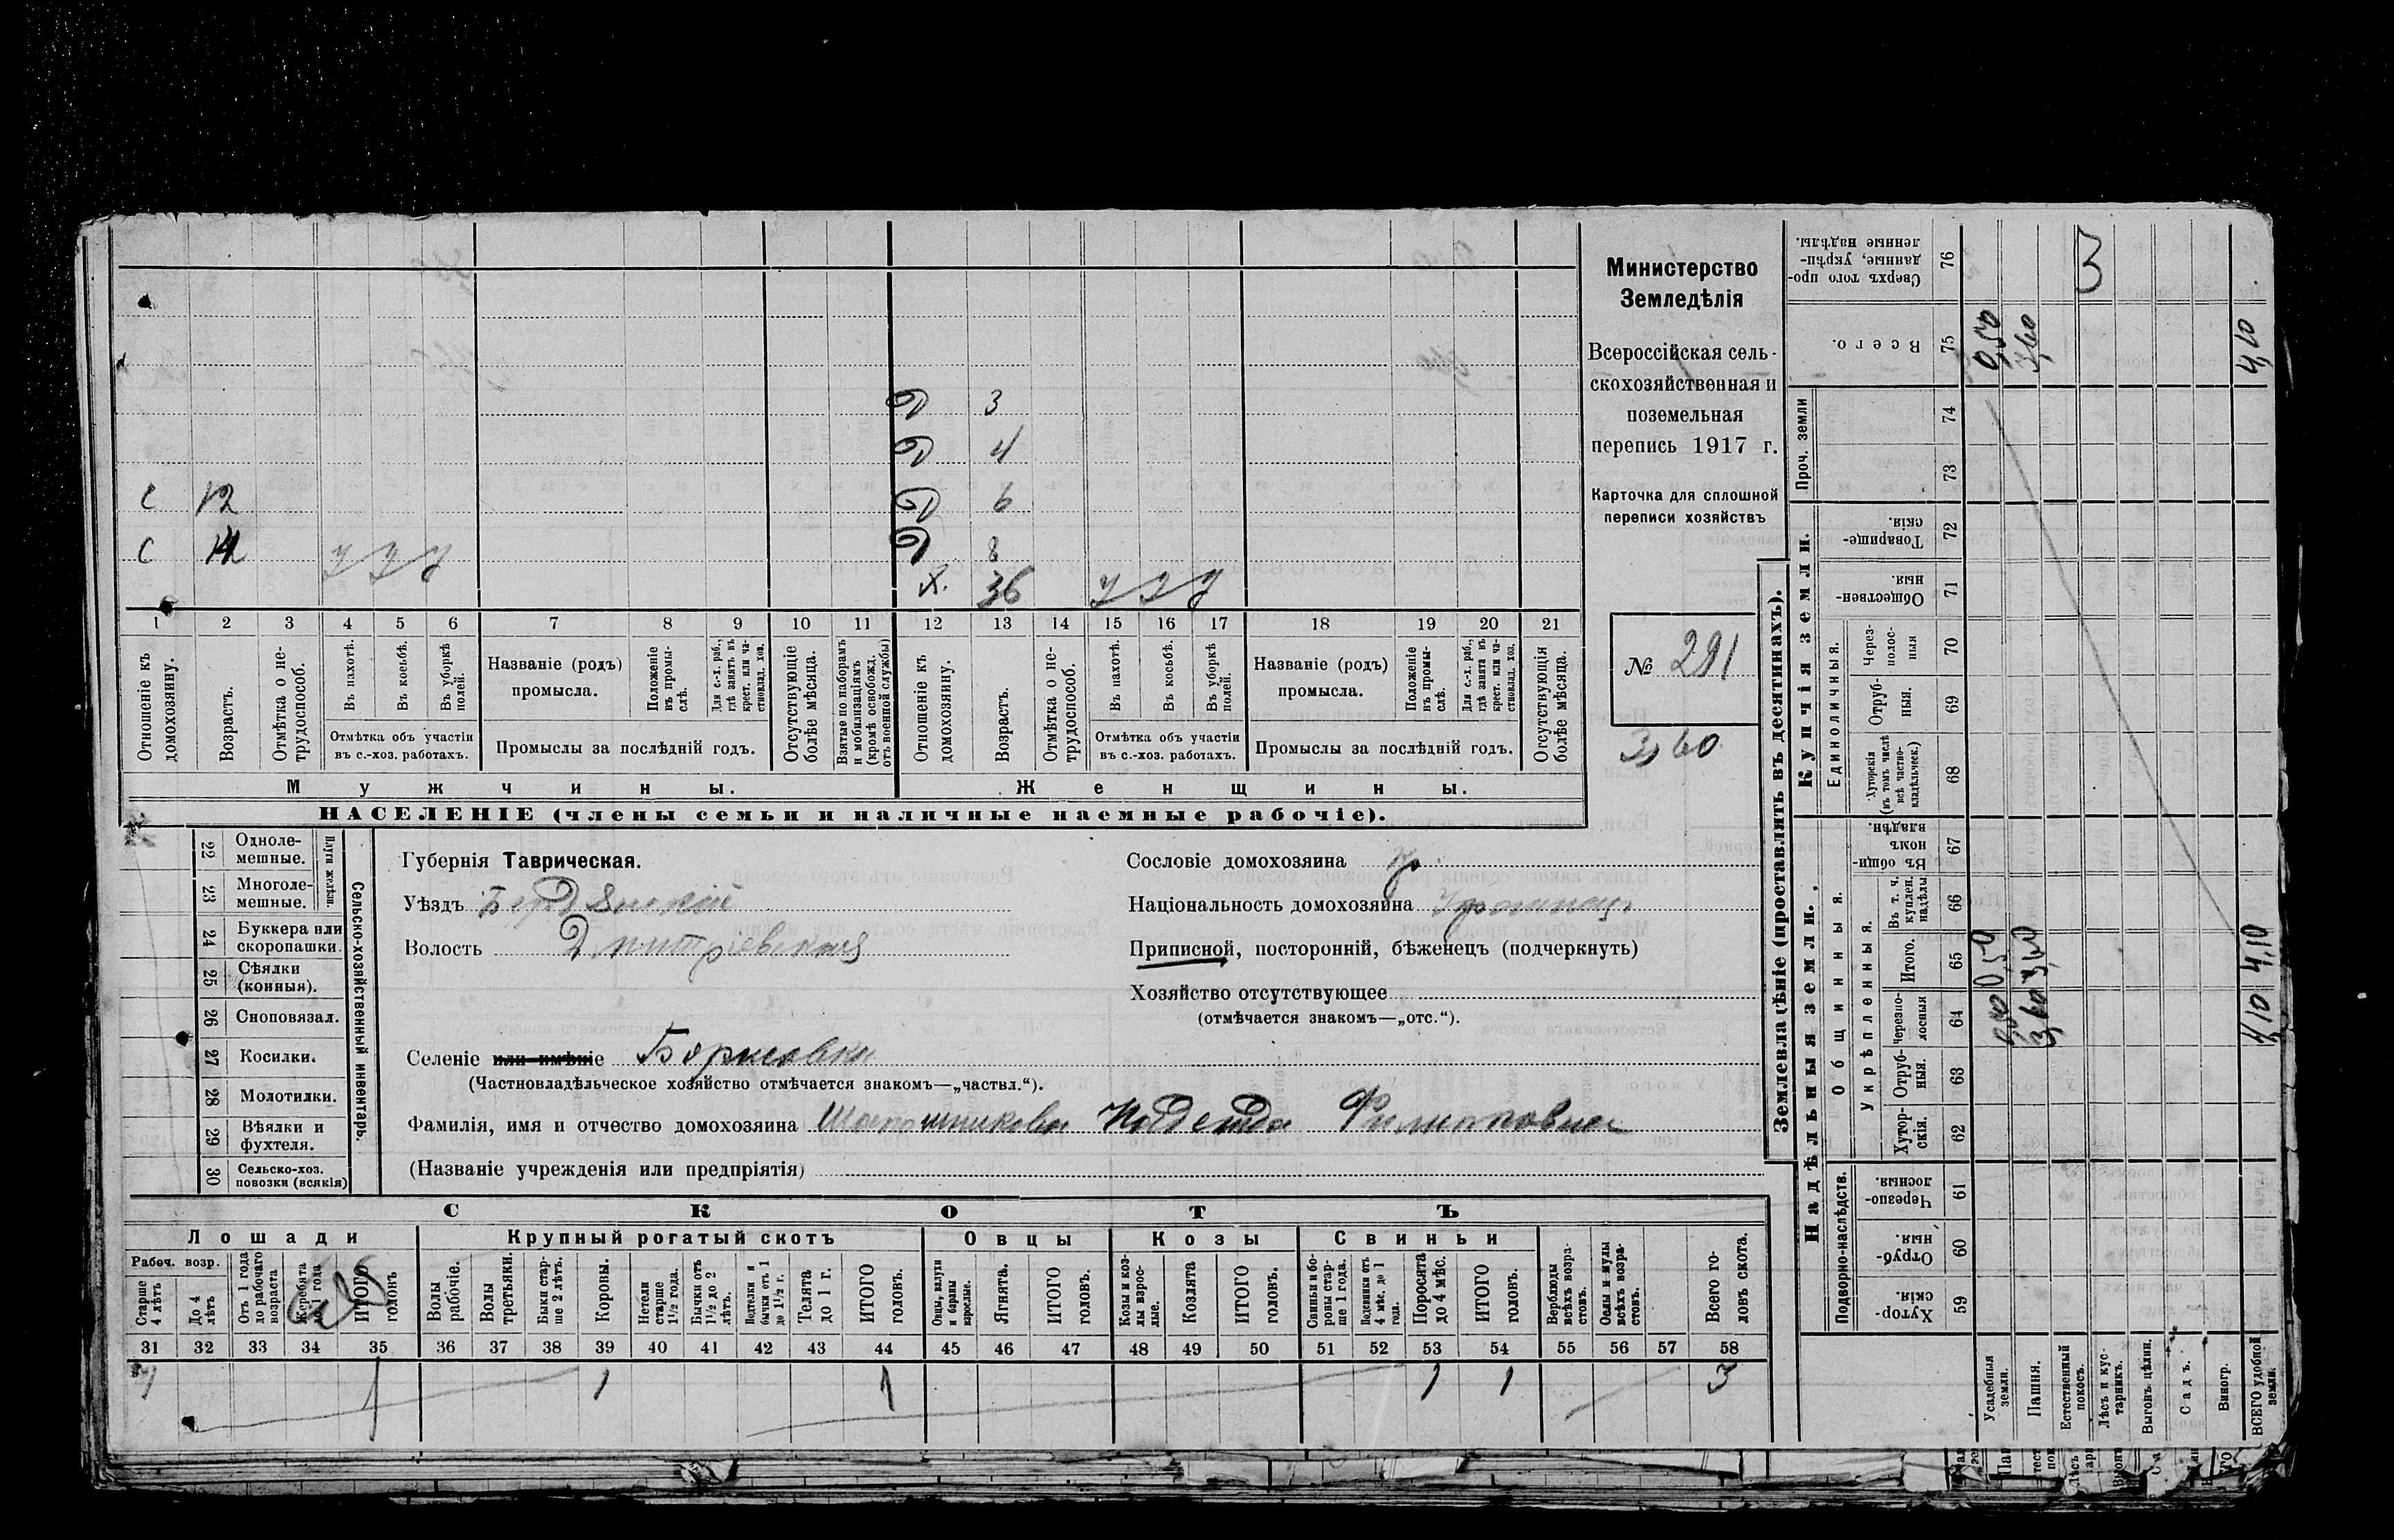 Министерство
Земледѣлія
Всероссійская сель-
скохозяйственная и
поземельная
перепись 1917 г.
Карточка для сплошной
переписи хозяйствъ
№ 291
3,60
Д 3
Д 4
С 12 Д 6
С Д 8
Х. 36
1 2 3 4 5 6 7 8 9 10 11 12 13 14 15 16 17 18 19 20 21
Отношеніе къ домохозяину.
Возрастъ.
Отмѣтка о не-трудоспособ.
Въ пахотѣ.
Въ косьбѣ.
Въ уборкѣ полей.
Отмѣтка объ участіи
въ с.-хоз. работахъ.
Названіе (родъ)
промысла.
Положеніе въ промы-слѣ.
Для с.-х. раб., гдѣ занятъ въ крест. или ча-стновлад. хоз.
Промыслы за послѣдній годъ.
Отсутствующіе болѣе мѣсяца.
Взятые по наборамъ и мобилизаціямъ (кромѣ освобожд. отъ военной службы)
Отношеніе къ домохозяину.
Возрастъ.
Отмѣтка о не-трудоспособ.
Въ пахотѣ.
Въ косьбѣ.
Въ уборкѣ полей.
Отмѣтка объ участіи
въ с.-хоз. работахъ.
Названіе (родъ)
промысла.
Положеніе въ промы-слѣ.
Для с.-х. раб., гдѣ занята въ крест. или ча-стновлад. хоз.
Промыслы за послѣдній годъ.
Отсутствующія болѣе мѣсяца.
Мужчины. Женщины.
НАСЕЛЕНІЕ (члены семьи и наличные наемные рабочіе).
22 Одноле-мешные.
23 Многоле-мешные.
Плуги желѣзн.
24 Буккера или скоропашки.
25 Сѣялки (конныя).
26 Сноповязал.
27 Косилки.
28 Молотилки.
29 Вѣялки и фухтеля.
30 Сельско-хоз. повозки (всякія)
Сельско-хозяйственный инвентарь.
Губернія Таврическая.
Уѣздъ Бердянскій
Волость Дмитріевская
Селеніе или имѣніе Борисовка
(Частновладѣльческое хозяйство отмѣчается знакомъ—„частвл.“).
Фамилія, имя и отчество домохозяина Шапошникова Надежда Филиповна
(Названіе учрежденія или предпріятія)
Сословіе домохозяина
Національность домохозяина
Приписной, посторонній, бѣженецъ (подчеркнуть)
Хозяйство отсутствующее
(отмѣчается знакомъ—„отс.“).
СКОТЪ
Лошади Крупный рогатый скотъ Овцы Козы Свиньи
Рабоч. возр.
Старше 4 лѣтъ
До 4 лѣтъ
Отъ 1 года до рабочаго возраста
Жеребята до 1 года
ИТОГО головъ
Волы рабочіе.
Волы третьяки.
Быки стар-ше 2 лѣтъ.
Коровы.
Нетели старше 1½ года.
Бычки отъ 1½ до 2 лѣтъ.
Подтелки и бычки отъ 1 до 1½ г.
Телята до 1 г.
ИТОГО головъ.
Овцы, валухи и бараны взрослые.
Ягнята.
ИТОГО головъ.
Козы и коз-лы взрос-лые.
Козлята
ИТОГО головъ.
Свиньи и бо-ровы стар-ше 1 года.
Подсвинки отъ 4 мѣс. до 1 года.
Поросята до 4 мѣс.
ИТОГО головъ.
Верблюды всѣхъ возра-стовъ.
Ослы и мулы всѣхъ возра-стовъ.
Всего го-ловъ скота.
31 32 33 34 35 36 37 38 39 40 41 42 43 44 45 46 47 48 49 50 51 52 53 54 55 56 57 58
1 1 1 1 1 1 3
Землевладѣніе (проставлять въ десятинахъ).
Надѣльныя земли. Купчія земли. Проч. земли
Подворно-наслѣдств.
Общинныя.
Укрѣпленныя.
Единоличныя.
Хутор-скія. 59
Отруб-ныя. 60
Черезпо-лосныя. 61
Хутор-скія. 62
Отруб-ныя. 63
Черезпо-лосныя 64
Итого. 65
Въ т. ч. куплен. надѣлы 66
Въ общи-номъ владѣн. 67
Хуторскія (въ томъ числѣ всѣ частно-владѣльческ.) 68
Отруб-ныя. 69
Через-полос-ныя 70
Обществен-ныя. 71
Товарище-скія. 72
73
74
Всего. 75
Сверхъ того про-данные, укрѣп-ленные надѣлы. 76
Усадебныя земли. 0,50 0,50
Пашня. 3,60 3,60 3,60
Естественный покосъ.
Лѣсъ и кус-тарникъ. 3
Выгонъ цѣлин.
Садъ.
Виногр.
ВСЕГО удобной земли. 4,10 4,10 4,10